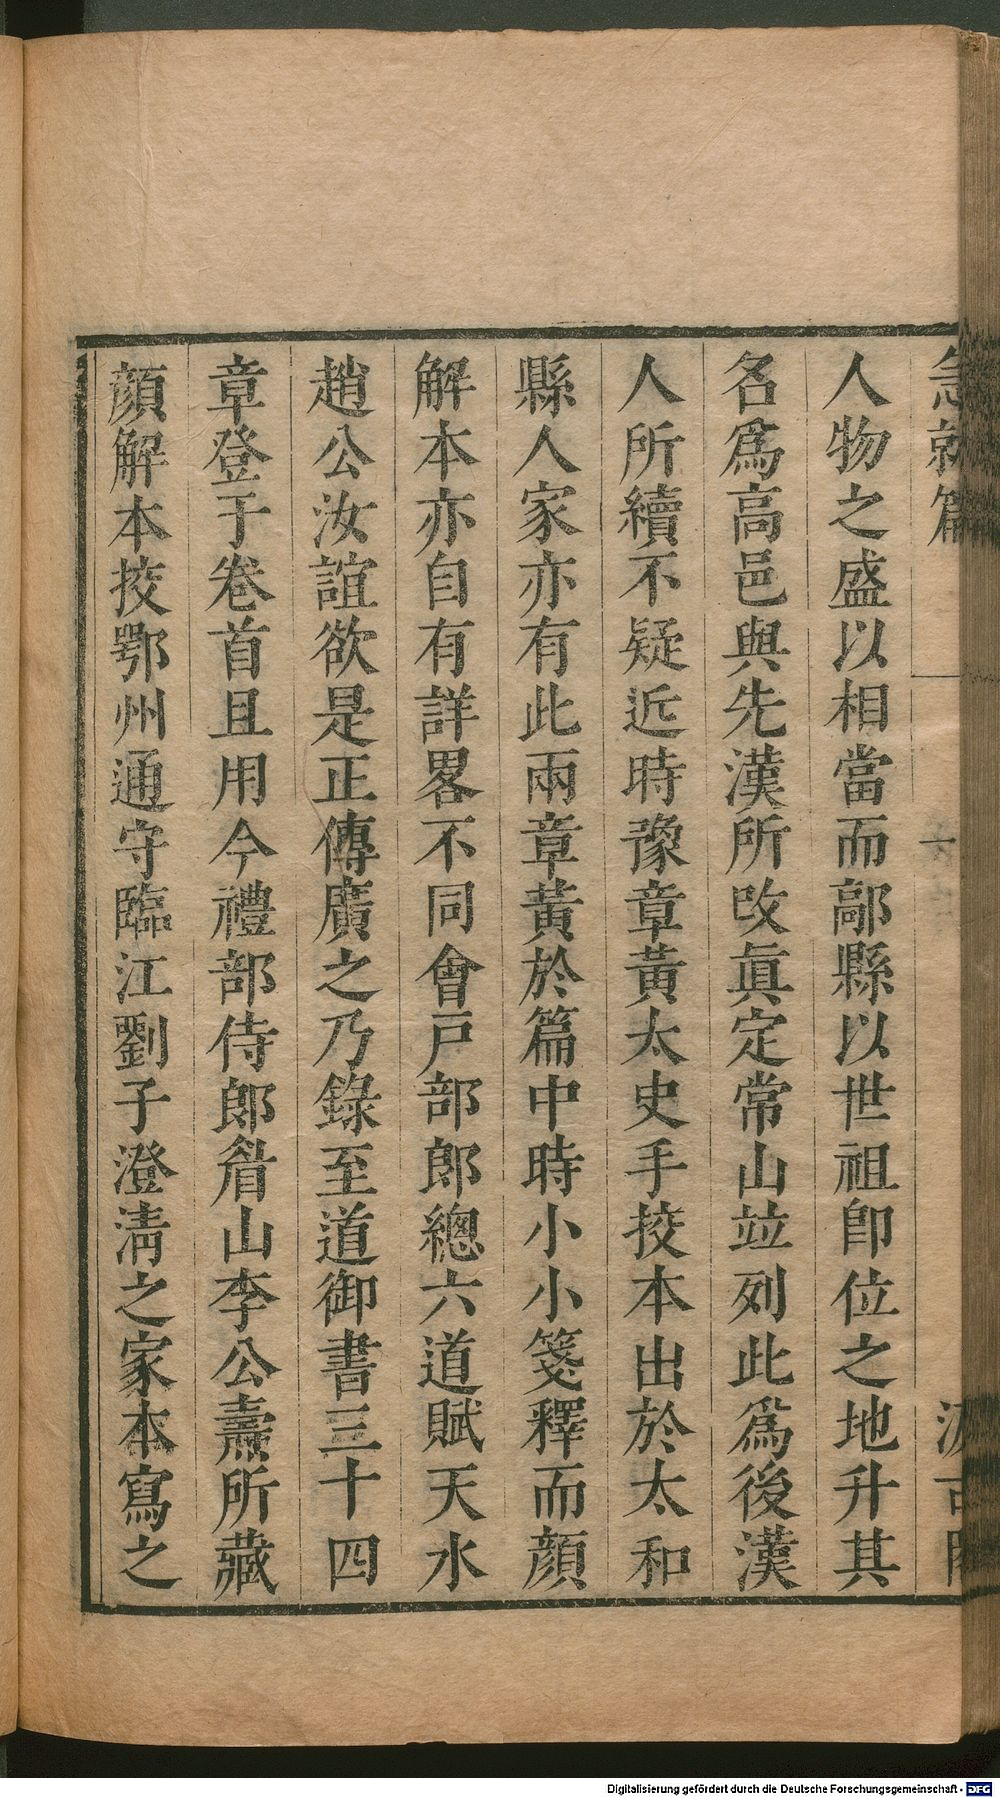 急就篇
汲古閣
人物之盛以相當而鄗縣以世祖卽位之地升其
名爲高邑與先漢所改眞定常山竝列此爲後漢
人所續不疑近時豫章黃太史手挍本出於太和
縣人家亦有此兩章黃於篇中時小小箋釋而顔
解本亦自有詳畧不同會戸部郎總六道賦天水
趙公汝誼欲是正傳廣之乃錄至道御書三十四
章登于卷首且用今禮部侍郎眉山李公燾所藏
顔解本挍鄂州通守臨江劉子澄淸之家本寫之
Digitalisierung gefördert durch die Deutsche Forschungsgemeinschaft - DFG